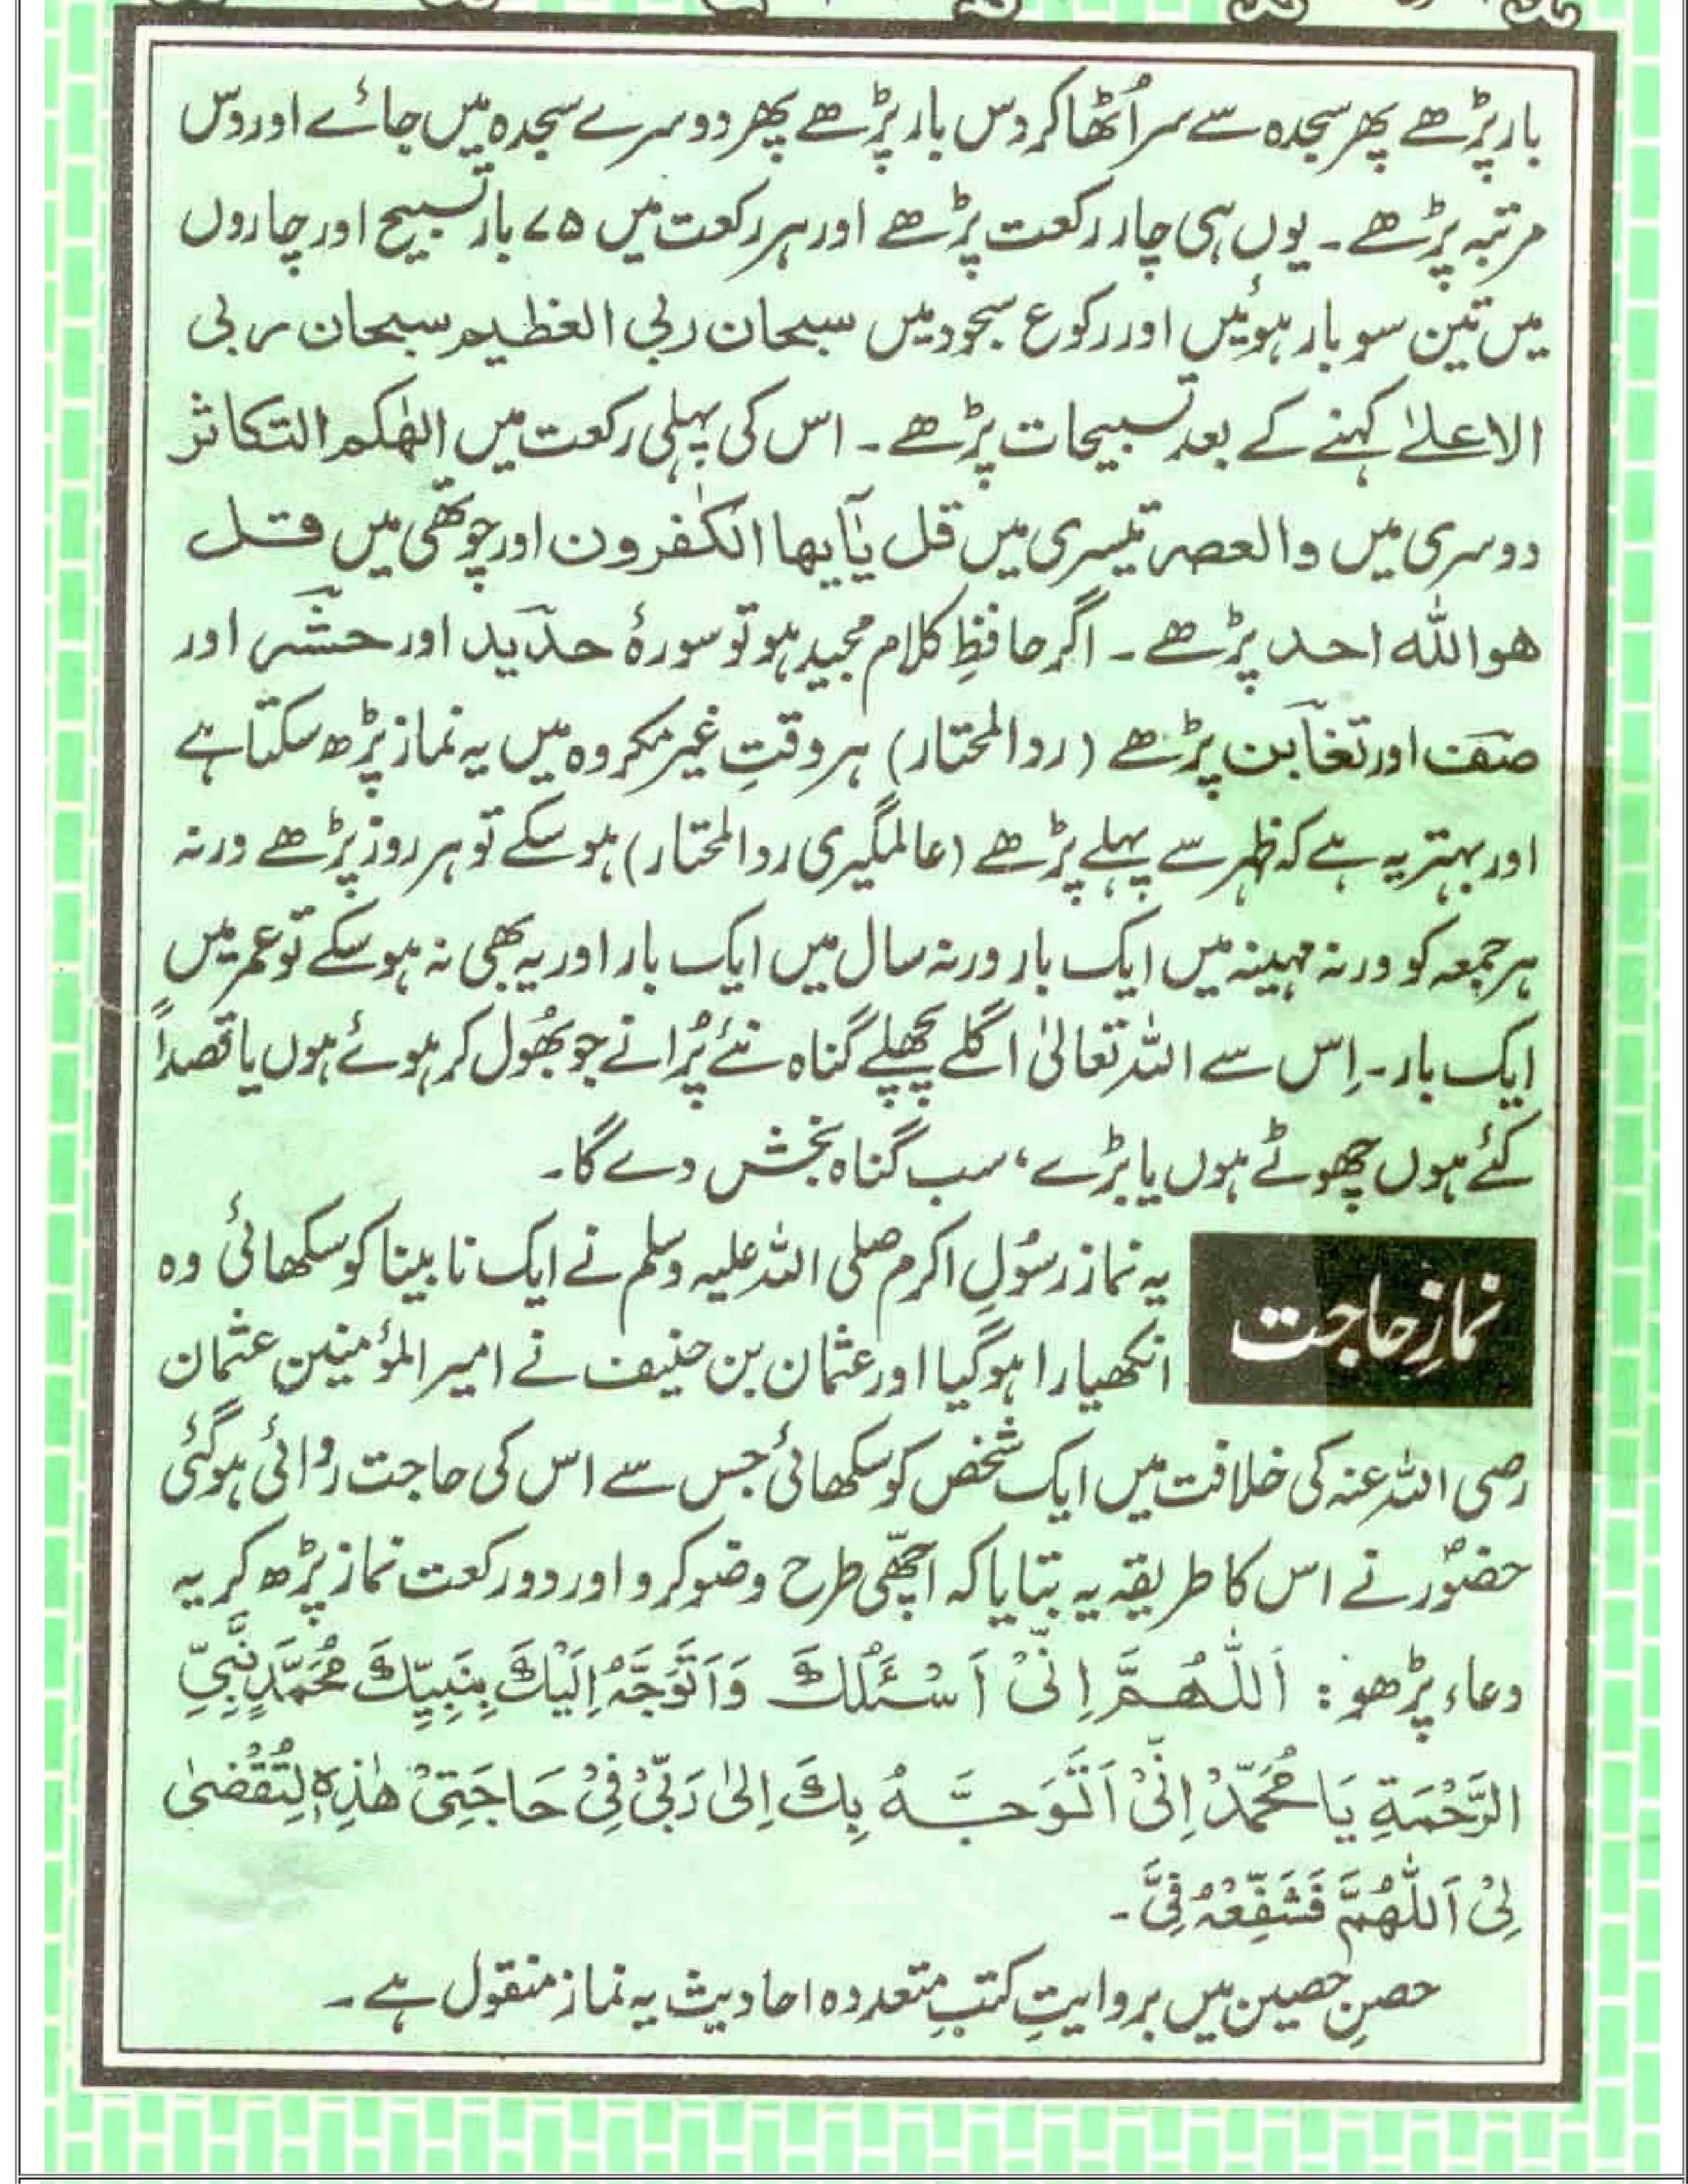 بار پڑھے پھر سجدہ سے سر اُٹھا کر دس بار پڑھے پھر دوسرے سجدہ میں جائے اور دس
مرتبہ پڑھے۔ یوں ہی چار رکعت پڑھے اور ہر رکعت میں ۷۵ بار تسبیح اور چاروں
میں تین سو بار ہوئیں اور رکوع سجود میں سبحان ربی العظیم سبحان ربی
الاعلےٰ کہنے کے بعد تسبیحات پڑھے۔ اس کی پہلی رکعت میں الھٰکم التکاثر
دوسری میں والعصر تیسری میں قل یٰٓایھا الکٰفرون اور چوتھی میں قل
ھو اللہ احد پڑھے۔ اگر حافظِ کلام مجید ہو تو سورۂ حدید اور حشر اور
صف اور تغابن پڑھے (ردالمحتار) ہر وقتِ غیر مکروہ میں یہ نماز پڑھ سکتا ہے
اور بہتر یہ ہے کہ ظہر سے پہلے پڑھے (عالمگیری ردالمحتار) ہو سکے تو ہر روز پڑھے ورنہ
ہر جمعہ کو ورنہ مہینہ میں ایک بار ورنہ سال میں ایک بار اور یہ بھی نہ ہو سکے تو عمر میں
ایک بار۔ اِس سے اللہ تعالیٰ اگلے پچھلے گناہ نئے پُرانے جو بھُول کر ہوئے ہوں یا قصداً
کئے ہوں چھوٹے ہوں یا بڑے، سب گناہ بخش دے گا۔
نمازِ حاجت
یہ نماز رسُولِ اکرم صلی اللہ علیہ وسلم نے ایک نابینا کو سکھائی وہ
انکھیارا ہو گیا اور عثمان بن حنیف نے امیر المؤمنین عثمان
رضی اللہ عنہ کی خلافت میں ایک شخص کو سکھائی جس سے اس کی حاجت روائی ہو گئی
حضورؐ نے اس کا طریقہ یہ بتایا کہ اچھّی طرح وضو کرو اور دو رکعت نماز پڑھ کر یہ
دعاء پڑھو: اَللّٰھُمَّ اِنِّیْ اَسْئَلُكَ وَاَتَوَجَّهُ اِلَیْكَ بِنَبِیِّكَ مُحَمَّدٍ نَّبِیِّ
الرَّحْمَةِ یَا مُحَمَّدُ اِنِّیْ اَتَوَجَّهُ بِكَ اِلیٰ رَبِّیْ فِیْ حَاجَتِیْ ھٰذِهٖ لِتُقْضیٰ
لِیْ اَللّٰھُمَّ فَشَفِّعْهُ فِیَّ۔
حصنِ حصین میں بروایتِ کتبِ متعددہ احادیث یہ نماز منقول ہے۔